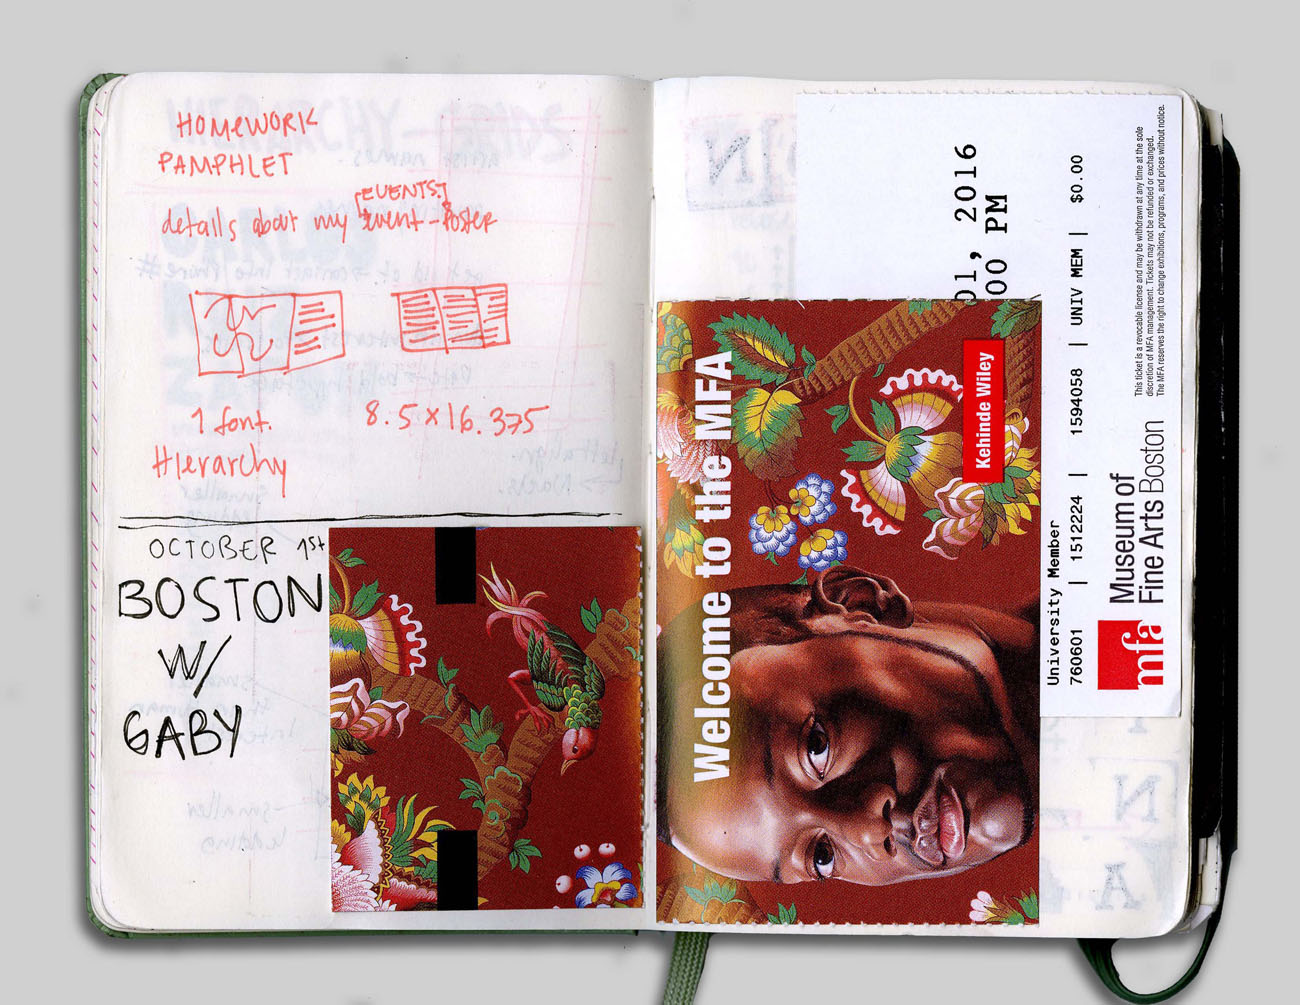 HOMEWORK
PAMPHLET
[EVENTS]
details about my event - Poster
1 font.
Hierarchy
8.5 x 16.375
OCTOBER 1st
BOSTON
W/
GABY
Welcome to the MFA
Kehinde Wiley
01, 2016
00 PM
University Member
760601 | 1512224 | 1594058 | UNIV MEM | $0.00
mfa
Museum of
Fine Arts Boston
This ticket is a revocable license and may be withdrawn at any time at the sole
discretion of MFA management. Tickets may not be refunded or exchanged.
The MFA reserves the right to change exhibitions, programs, and prices without notice.